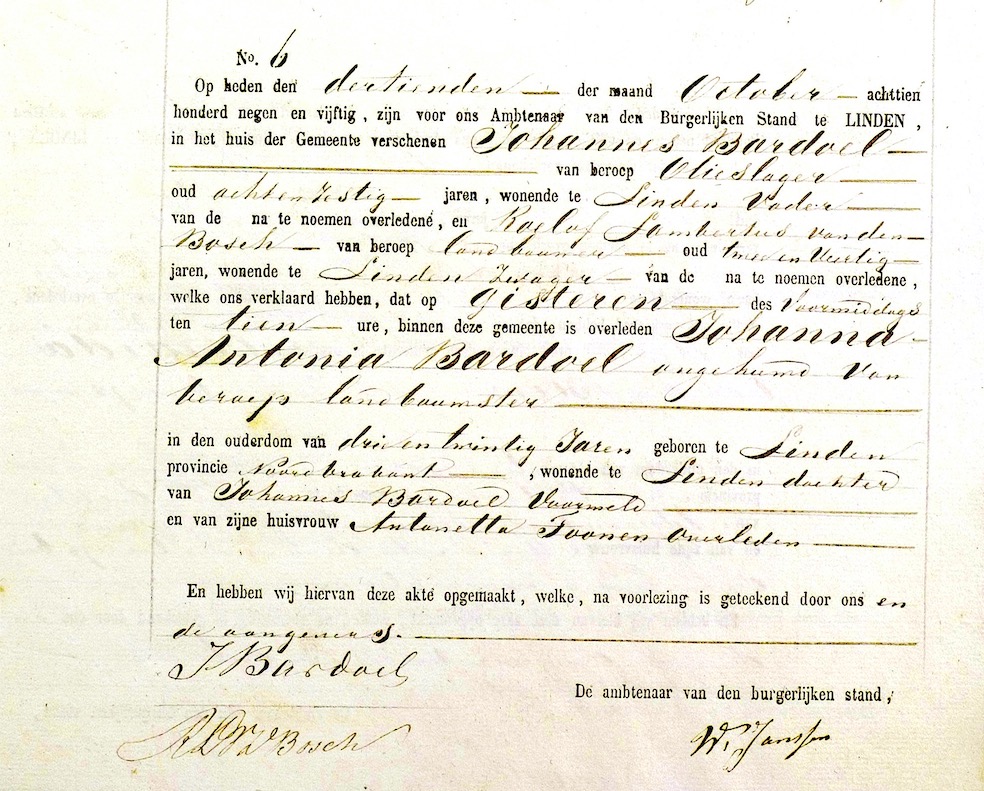 No. 6
Op heden den dertienden der maand October achttien
honderd negen en vijftig, zijn voor ons Ambtenaar van den Burgerlijken Stand te LINDEN,
in het huis der Gemeente verschenen Johannes Bardoel
van beroep Olieslager
oud achtenzestig jaren, wonende te Linden Vader
van de na te noemen overledene, en Roelof Lambertus van den
Bosch van beroep landbouwer oud twee en Veertig
jaren, wonende te Linden Zwager van de na te noemen overledene,
welke ons verklaard hebben, dat op gisteren des Voormiddags
ten tien ure, binnen deze gemeente is overleden Johanna
Antonia Bardoel ongehuwd van
beroep landbouwster
in den ouderdom van drie en twintig Jaren geboren te Linden
provincie Noordbrabant, wonende te Linden dochter
van Johannes Bardoel Voormeld
en van zijne huisvrouw Antonetta Toonen overleden
En hebben wij hiervan deze akte opgemaakt, welke, na voorlezing is geteekend door ons en
de aangevers.
J Bardoel
De ambtenaar van den burgerlijken stand,
R L V D Bosch
W. Janssen